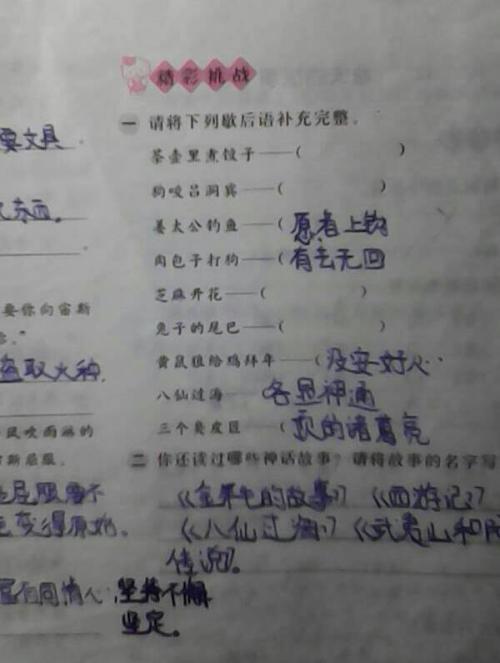 精彩挑战
一 请将下列歇后语补充完整。
茶壶里煮饺子——( )
狗咬吕洞宾——( )
姜太公钓鱼——(愿者上钩
肉包子打狗——(有去无回
芝麻开花——( )
兔子的尾巴——( )
黄鼠狼给鸡拜年——(没安好心
八仙过海——各显神通
三个臭皮匠——(顶的诸葛亮
二 你还读过哪些神话故事?请将故事的名字写
《的故事》《西游记》
《八仙过海》《武夷山和
传说》。
要文具
东西。
要你向宙斯
盗取火种
风吹雨淋的
宙斯屈服。
屈服
变得原始。
同情心,坚持不懈
坚定。